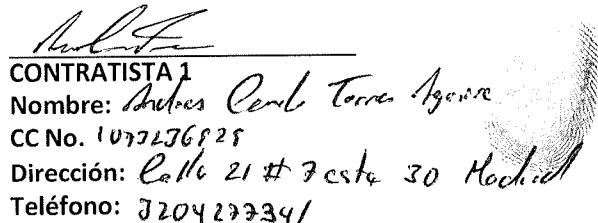 CONTRATISTA 1
Nombre: Andres Camilo Torres Aguirre
CC No. 1073236825
Dirección: Calle 21 # 7 este 30 Madrid
Teléfono: 3204277341